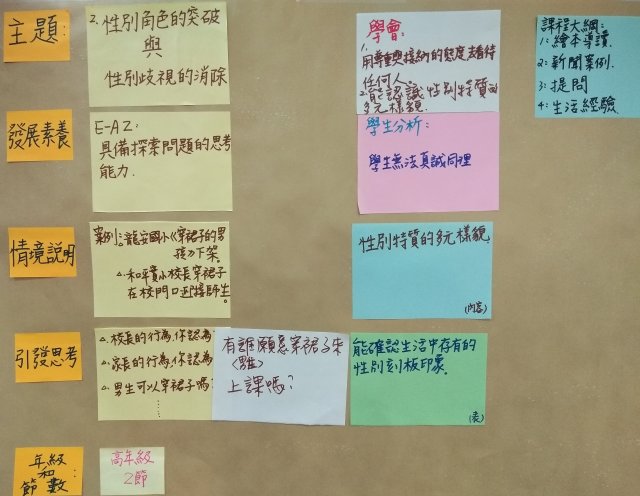 主題:
2. 性別角色的突破
與
性別歧視的消除
學會:
1.
用尊重與接納的態度去看待
任何人.
2. 能認識性別特質的
多元樣貌.
課程大綱:
1: 繪本導讀.
2: 新聞案例.
3: 提問
4: 生活經驗
發展素養
E-A2:
具備探索問題的思考
能力.
學生分析:
學生無法真誠同理
情境說明
案例:。龍安國小《穿裙子的男
孩》下架。
△和平實小校長穿裙子
在校門口迎接師生。
性別特質的多元樣貌.
(內容)
引發思考
△校長的行為,你認為
△家長的行為,你認為
△男生可以穿裙子嗎?
......
有誰願意穿裙子來
〈男生〉
上課嗎?
能確認生活中存有的
性別刻板印象.
(表)
年級
和
節數:
高年級
2節